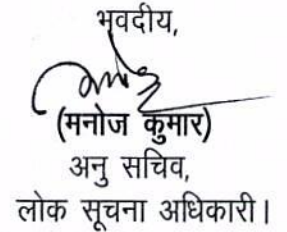 भवदीय,
(मनोज कुमार)
अनु सचिव,
लोक सूचना अधिकारी।